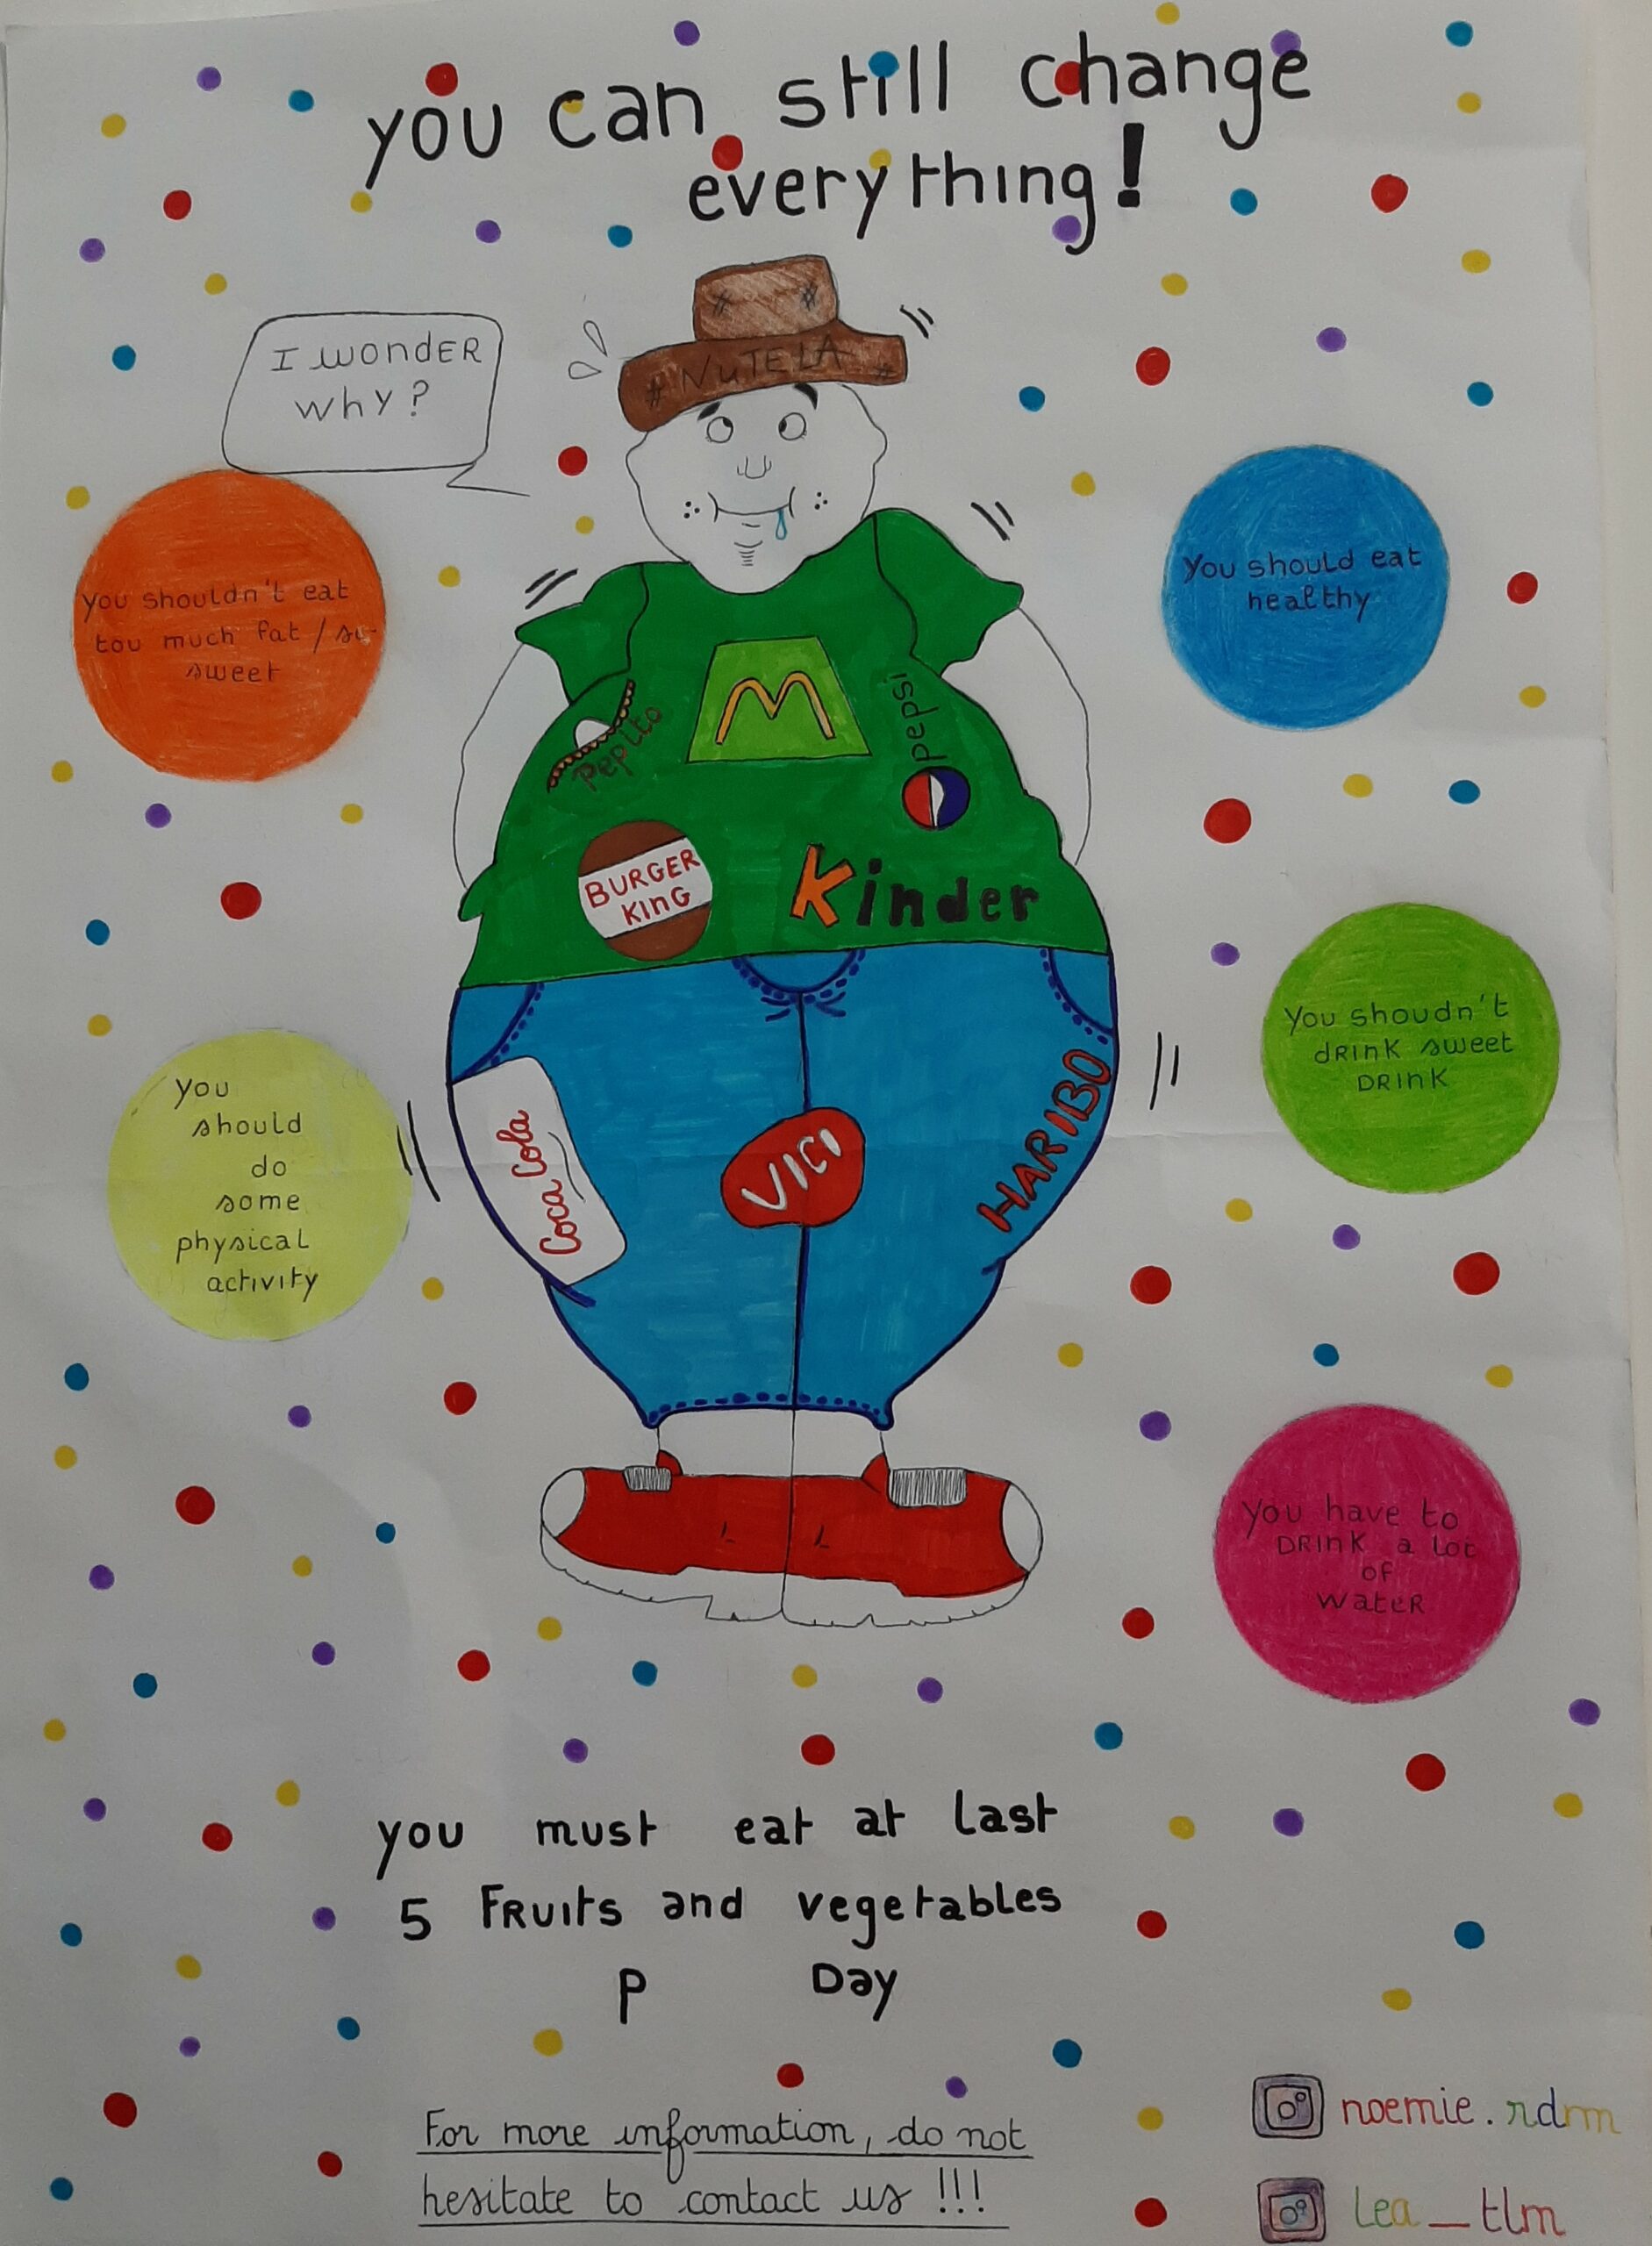 you can still change
everything!
I wonder
why?
NuTELA
you shouldn't eat
tou much fat / su-
sweet
You should eat
healthy
M
Pepito
pepsi
BURGER
KING
Kinder
You
should
do
some
physical
activity
You shoudn't
dRink sweet
DRINK
Coca Cola
VICI
HARIBO
You have to
DRINK a lot
of
water
you must eat at last
5 Fruits and vegetables
P Day
For more information, do not
hesitate to contact us !!!
noemie.rdm
lea_tlm